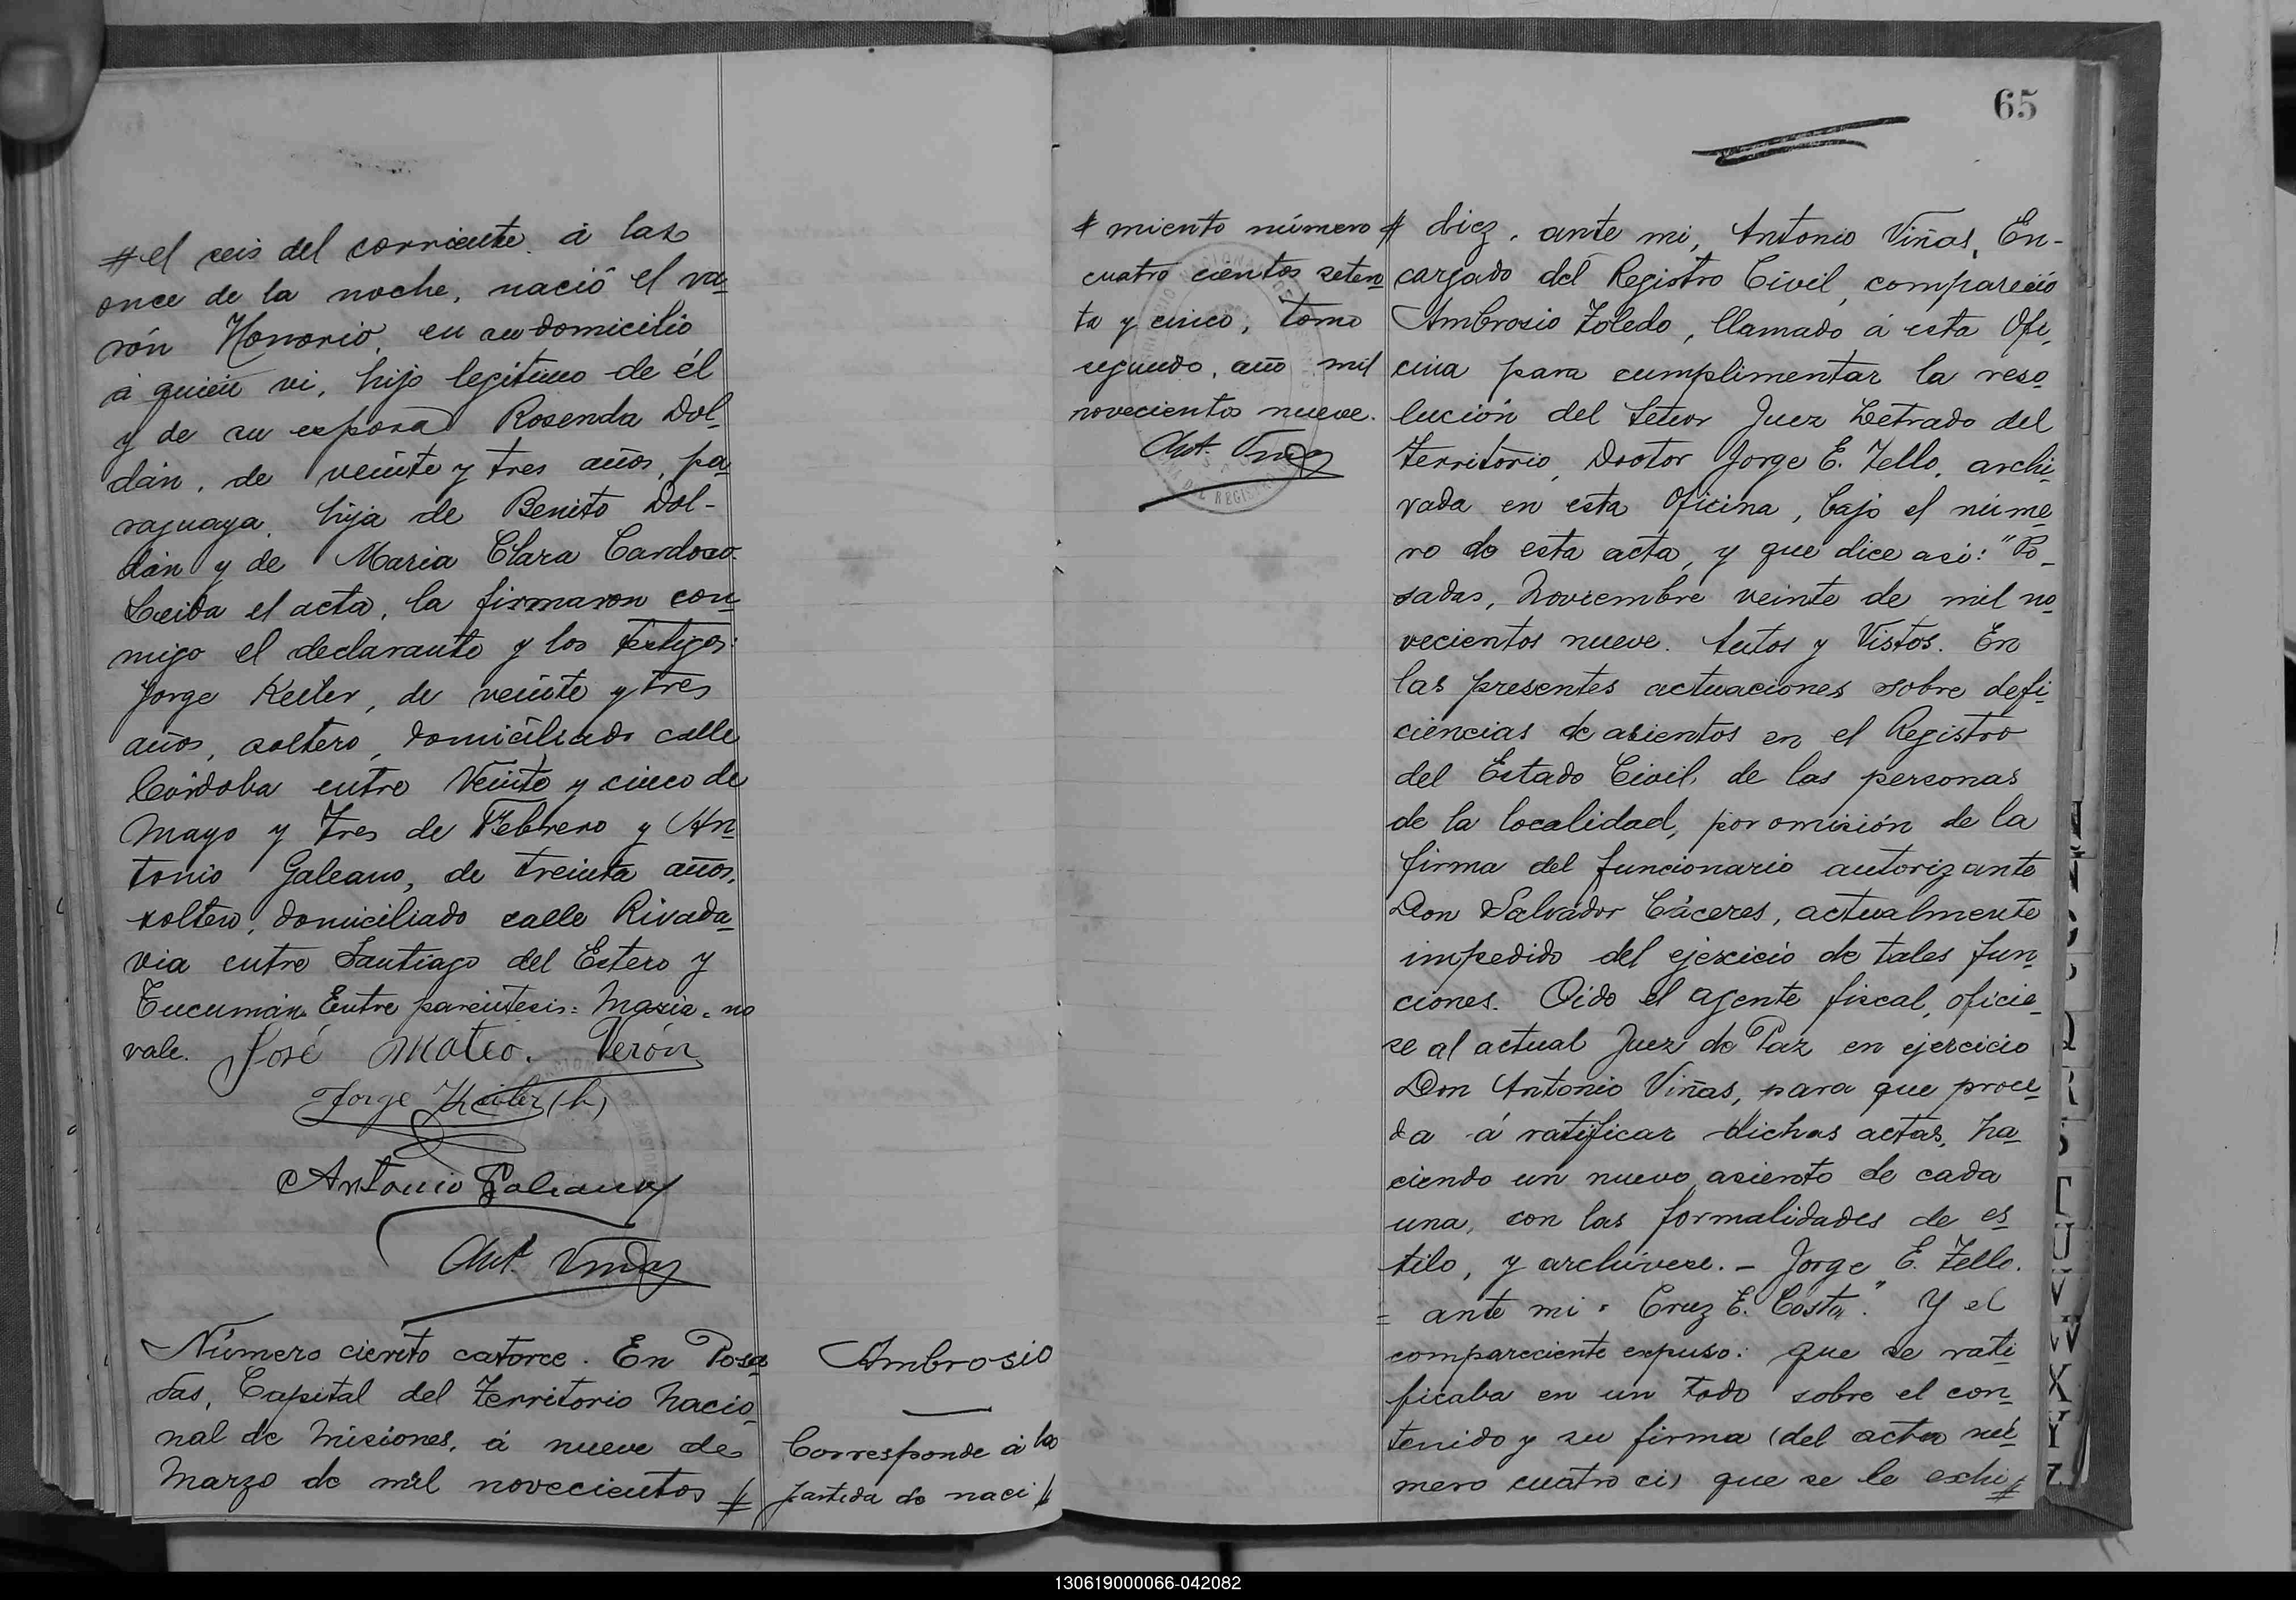 # el seis del corriente á las
once de la noche, nació el va-
rón Honorio, en su domicilio
á quien vi, hijo legítimo de él
y de su esposa Rosenda Dol-
dán, de veinte y tres años, pa-
raguaya, hija de Benito Dol-
dán y de Maria Clara Cardoso.
Leida el acta, la firmaron con-
migo el declarante y los testigos:
Jorge Keiler, de veinte y tres
años, soltero, domiciliado calle
Córdoba entre Veinte y cinco de
Mayo y Tres de Febrero y An-
tonio Galeano, de treinta años,
soltero, domiciliado calle Rivada-
via entre Santiago del Estero y
Tucumán. Entre paréntesis: Maria = no
vale. José Mateo. Verón
Jorge Keiler (h)
Antonio Galeano
Ant. Viñas
Número ciento catorce. En Posa-
das, Capital del Territorio Nacio-
nal de Misiones, á nueve de
Marzo de mil novecientos #
Ambrosio
Corresponde á la
partida de naci #
65
# miento número
cuatro cientos seten-
ta y cinco, tomo
segundo, año mil
novecientos nueve.
Ant. Viñas
# diez, ante mi, Antonio Viñas, En-
cargado del Registro Civil, compareció
Ambrosio Toledo, llamado á esta Ofi-
cina para cumplimentar la reso-
lución del Señor Juez Letrado del
Territorio, Doctor Jorge E. Tello, archi-
vada en esta Oficina, bajo el núme-
ro de esta acta, y que dice asi: "Po-
sadas, Noviembre veinte de mil no-
vecientos nueve. Autos y Vistos. En
las presentes actuaciones sobre defi-
ciencias de asientos en el Registro
del Estado Civil, de las personas
de la localidad, por omisión de la
firma del funcionario autorizante
Don Salvador Cáceres, actualmente
impedido del ejercicio de tales fun-
ciones. Oido el agente fiscal, oficie-
se al actual Juez de Paz en ejercicio
Don Antonio Viñas, para que proce-
da á ratificar dichas actas, ha-
ciendo un nuevo asiento de cada
una, con las formalidades de es-
tilo, y archívese. - Jorge E. Tello.
= ante mi = Cruz E. Costa". Y el
compareciente expuso: que se rati-
ficaba en un todo sobre el con-
tenido y su firma (del acta nú-
mero cuatro ci) que se le exhi #
Q
R
S
T
U
V
W
X
Y
Z
130619000066-042082